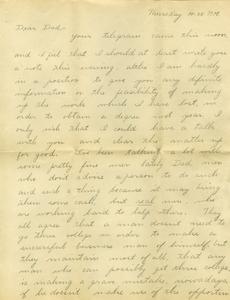 Thursday
Dear Dad,
Your telegram came this noon
and I felt that I should at least write you
a note this evening altho I am hardly
in a position to give you any definite
information on the feasibility of making
up the work which I have lost, in
order to obtain a degree next year. I
only wish that I could have a talk
with you and clear this matter up
for good. I've been talking a lot with
some pretty fine men lately Dad, men
who don't advise a person to do such
and such a thing because it may bring
them some cash, but real men who
are working hard to help others. They
all agree that a man doesn't need to
go thru college in order to make a
successful business man of himself, but
they maintain most of all, that any
man who can possibly get thru college
is making a grave mistake nowadays
if he doesnt make use of the opportun